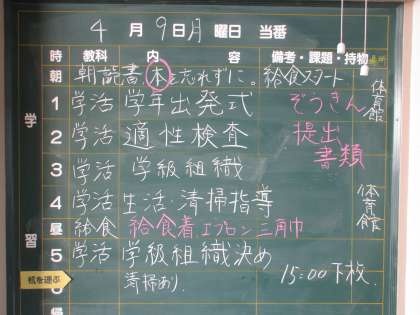 4月9日月曜日 当番
時 教科 内容 備考・課題・持物
朝 朝読書 本を忘れずに。給食スタート
1 学活 学年出発式 ぞうきん 体育館
2 学活 適性検査 提出書類
3 学活 学級組織
4 学活 生活・清掃指導 体育館
昼 給食 給食着エプロン三角巾
5 学活 学級組織決め
清掃あり。 15:00下校.
学習
机を運ぶ